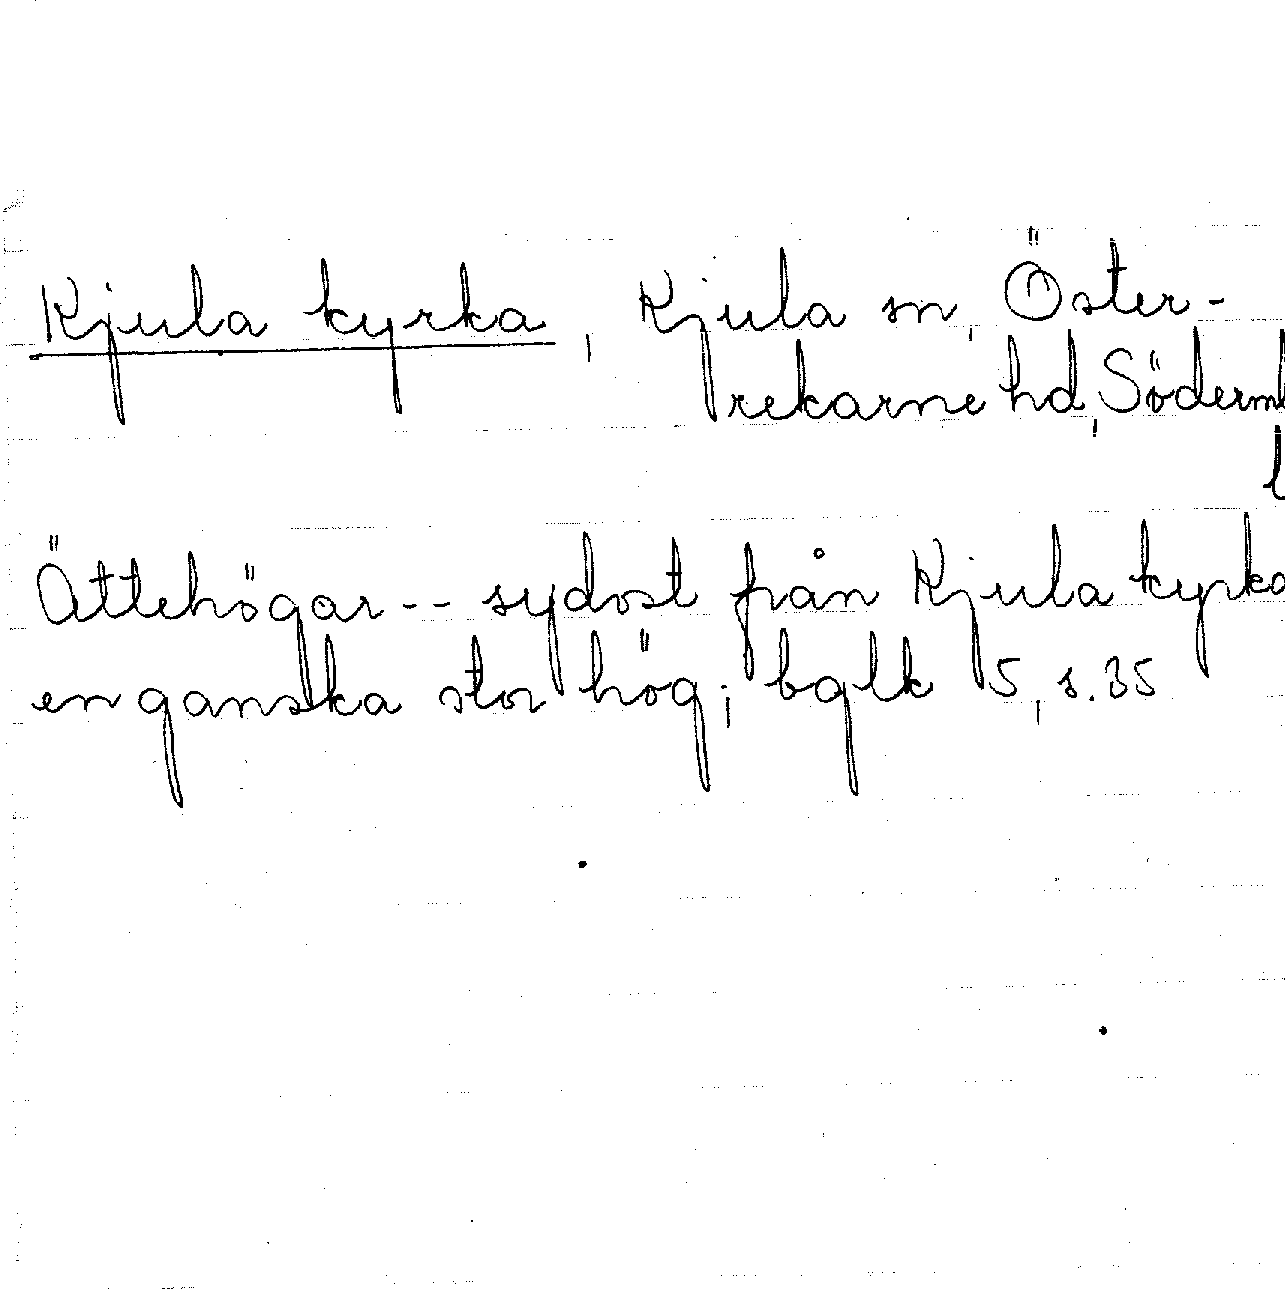 Kjula kyrka, Kjula sn, Öster-
rekarne hd, Söderml
l
Ättehögar -- sydost från Kjula kyrka
en ganska stor hög; bglk 5, s. 35